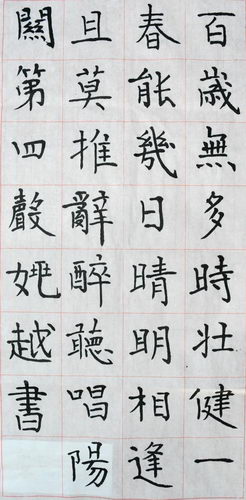 百歲無多時壯健一
春能幾日晴明相逢
且莫推辭醉聽唱陽
關第四聲越書